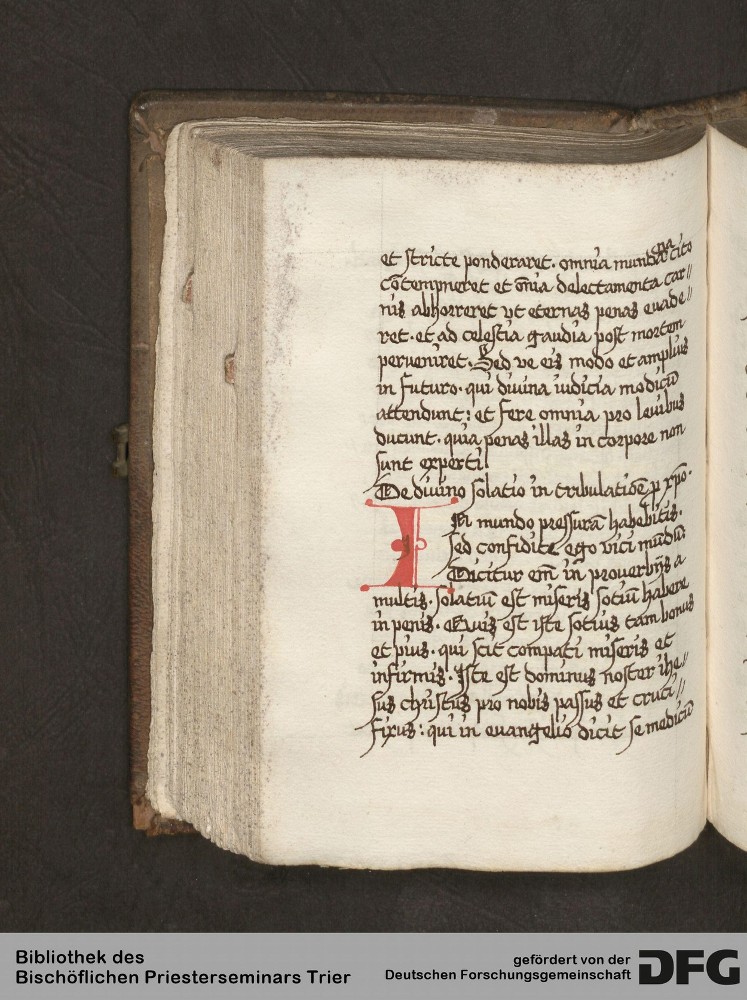 et stricte ponderaret. omnia mundana cito
cōtempneret et om̄ia delectamenta car//
nis abhorreret vt eternas penas euade//
ret. et ad celestia gaudia post mortem
perueniret. Sed ve eis modo et amplius
in futuro. qui diuina iudicia modicū
attendunt: et fere omnia pro leuibus
ducunt. quia penas illas in corpore non
sunt experti.
De diuino solatio in tribulatiōe p xp̄o.
IN mundo pressurā habebitis.
sed confidite. ego vici mūdū:
Dicitur em̄ in prouerbijs a
multis. solatiū est miseris sotiū habere
in penis. Quis est iste sotius tam bonus
et pius. qui scit compati miseris et
infirmis. Iste est dominus noster ihe//
sus christus pro nobis passus et cruci//
fixus: qui in euangelio dicit se medicū
Bibliothek des
Bischöflichen Priesterseminars Trier
gefördert von der
Deutschen Forschungsgemeinschaft
DFG